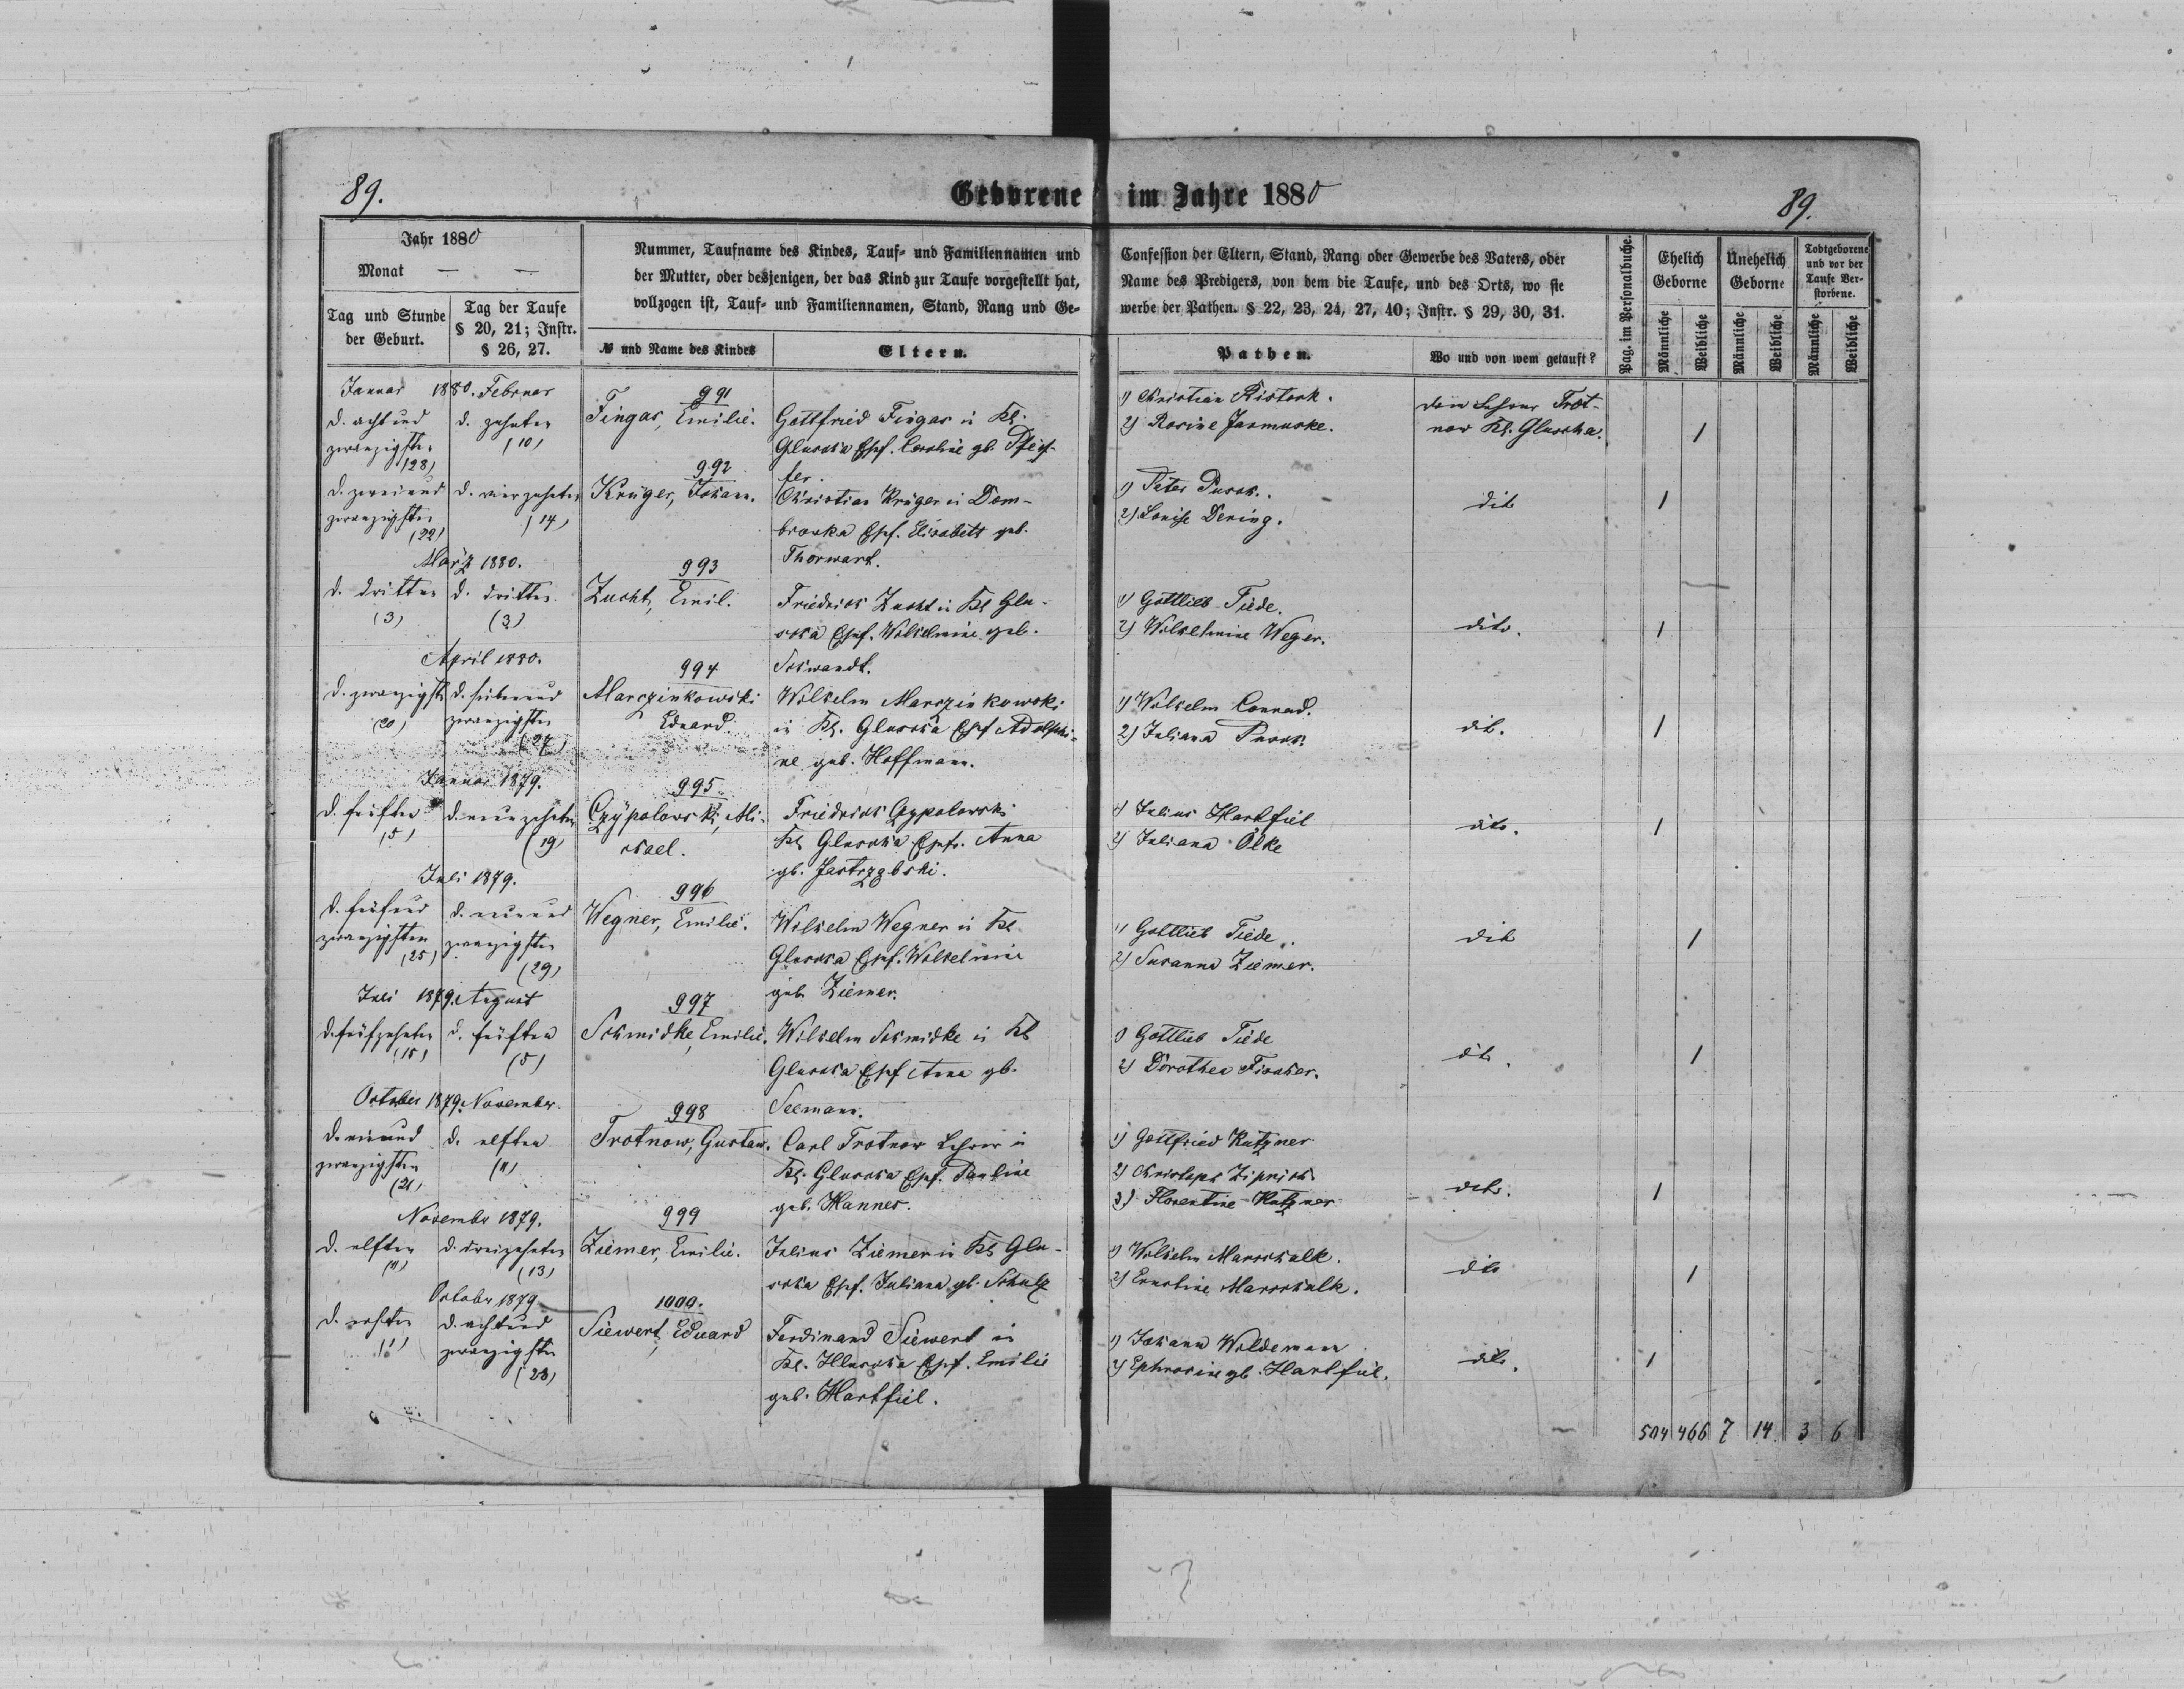 89.
Geborene im Jahre 1880
89.
Jahr 1880
Monat — —
Tag und Stunde
der Geburt.
Tag der Taufe
§ 20, 21; Instr.
§ 26, 27.
Nummer, Taufname des Kindes, Tauf- und Familiennamen und
der Mutter, oder desjenigen, der das Kind zur Taufe vorgestellt hat,
vollzogen ist, Tauf- und Familiennamen, Stand, Rang und Ge-
№ und Name des Kindes
Eltern.
Confession der Eltern, Stand, Rang oder Gewerbe des Vaters, oder
Name des Predigers, von dem die Taufe, und des Orts, wo sie
werbe der Pathen. § 22, 23, 24, 27, 40; Instr. § 29, 30, 31.
Pathen.
Wo und von wem getauft?
Pag. im Personalbuche.
Ehelich
Geborne
Unehelich
Geborne
Todtgeborene
und vor der
Taufe Ver-
storbene.
Männliche
Weibliche
Männliche
Weibliche
Männliche
Weibliche
Januar 1880. Februar
d. acht und
zwanzigsten
(28)
d. zehnten
(10)
991
Fingas, Emilie.
Gottfried Fingas in Kl.
Gluscha Ehf. Caroline gb. Pfeif-
fer.
1) Christian Ristock.
2) Rosine Jasmuske.
dem Lehrer Trot-
now Kl. Gluscha.
1
d. zwei und
zwanzigsten
(22)
d. vierzehnten
(14)
992
Krüger, Johann.
Christian Krüger in Dom-
browka Ehf. Elisabeth geb.
Thorwart.
1) Peter
2) Louise Dening.
dito
1
März 1880.
d. dritten
(3)
d. dritten
(3)
993
Zucht, Emil.
Friedrich Zucht in Kl Glu-
scha Ehf. Wilhelmine geb.
Schwandt.
1) Gottlieb Tiede.
2) Wilhelmine Weger.
dito.
1
April 1880.
d. zwanzigst
(20)
d. sieben und
zwanzigsten
(27)
994
Marczinkowski
Eduard
Wilhelm Marczinkowski
in Kl. Gluscha Ehf Adolphi-
ne geb. Hoffmann.
1) Wilhelm Conrad.
2) Juliana
dito.
1
Januar 1879.
d. fünften
(5)
d. neunzehnten
(19)
995.
Czypolowski, Mi-
chael.
Friedrich Czypolowski
Kl Gluscha Ehf. Anna
gb. Jastrzębski.
1) Julius Hartfiel
2) Juliana Ölke
dito.
1
Juli 1879.
d. fünf und
zwanzigsten
(25)
d. neun und
zwanzigsten
(29)
996
Wegner, Emilie.
Wilhelm Wegner in Kl
Gluscha Ehf. Wilhelmine
geb. Ziemer.
1) Gottlieb Tiede.
2) Susanna Ziemer.
dito
1
Juli 1879. August
d. fünfzehnten
(15)
d. fünften
(5)
997
Schmidke, Emilie.
Wilhelm Schmidke in Kl
Gluscha Ehf Anna gb.
Seemann.
1) Gottlieb Tiede
2) Dorothea Fischer.
dito.
1
October 1879. November.
d. ein und
zwanzigsten
(21)
d. elften
(11)
998
Trotnow, Gustaw.
Carl Trotnow Lehrer in
Kl. Gluscha Ehf. Pauline
geb. Hannes.
1) Gottfried Kutzner
2) Christoph
3) Florentine Kutzner
dito.
1
November 1879.
d. elften
(11)
d. dreizehnten
(13)
999
Ziemer, Emilie.
Julius Ziemer in Kl Glu-
scha Ehf. Juliana gb. Schulz
1) Wilhelm Marschalk.
2) Ernstine Marschalk.
dito
1
October 1879
d. ersten
(1)
d. acht und
zwanzigsten
(28)
1000.
Siewert, Eduard
Ferdinand Siewert in
Kl. Gluscha Ehf. Emilie
geb. Hartfiel.
1) Johann Woldemann
2) Ephrosine gb. Hartfiel.
dito.
1
504 466 7 14 3 6